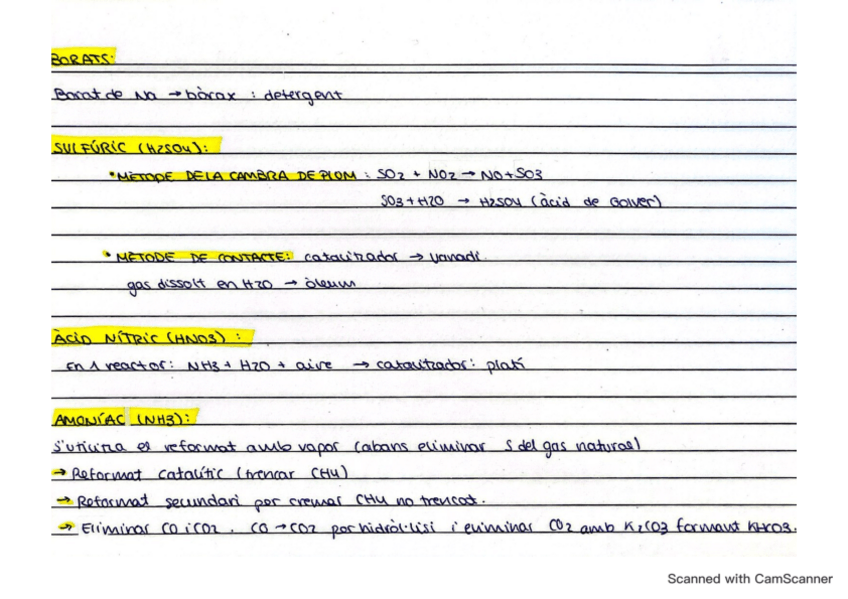 BORATS:
Borat de Na → bòrax : detergent
SULFÚRIC (H2SO4):
• MÈTODE DE LA CAMBRA DE PLOM : SO2 + NO2 → NO + SO3
SO3 + H2O → H2SO4 (àcid de Golver)
• MÈTODE DE CONTACTE: catalitzador → vanadi.
gas dissolt en H2O → òleum
ÀCID NÍTRIC (HNO3) :
En 1 reactor: NH3 + H2O + aire → catalitzador: platí
AMONÍAC (NH3):
S'utilitza el reformat amb vapor (abans eliminar S del gas natural)
→ Reformat catalític (trencar CH4)
→ Reformat secundari per cremar CH4 no trencat.
→ Eliminar CO i CO2 . CO → CO2 per hidròl·lisi i eliminar CO2 amb K2CO3 formant KHCO3.
Scanned with CamScanner